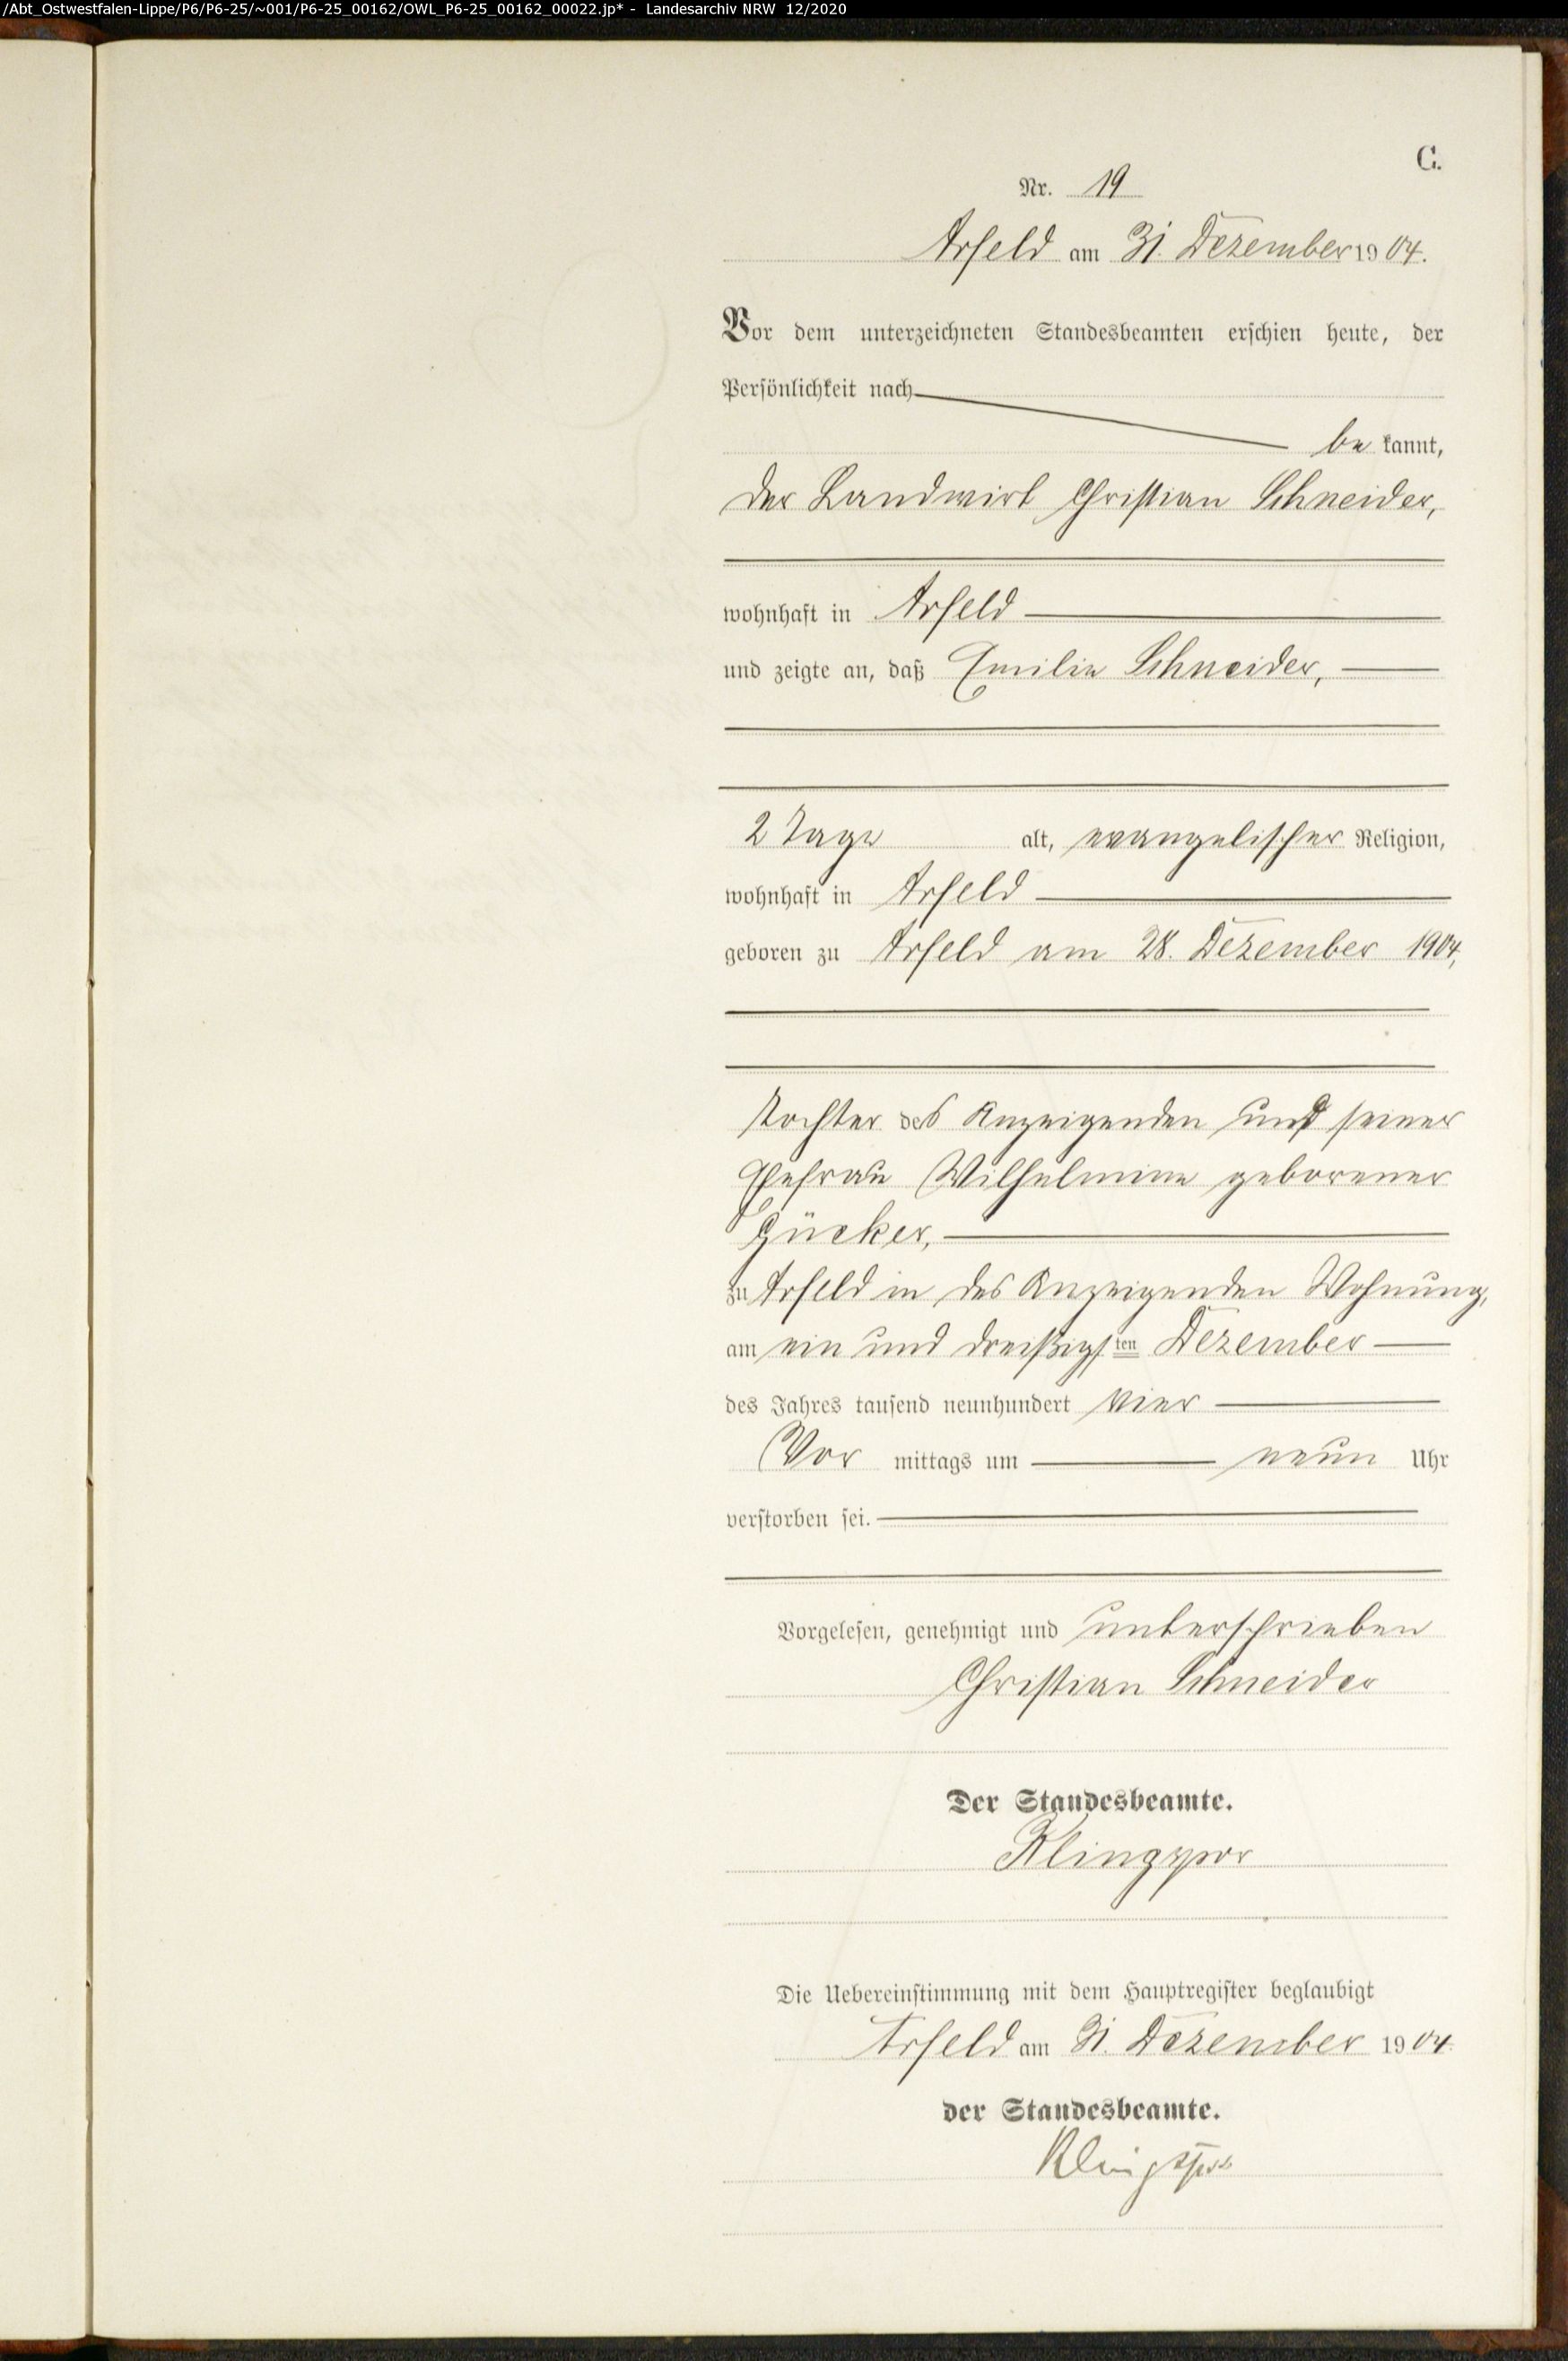 /Abt_Ostwestfalen-Lippe/P6/P6-25/~001/P6-25_00162/OWL_P6-25_00162_00022.jp* - Landesarchiv NRW 12/2020
C.
Nr. 19
Arfeld am 31. Dezember 1904.
Vor dem unterzeichneten Standesbeamten erschien heute, der
Persönlichkeit nach
be kannt,
der Landwirt Christian Schneider,
wohnhaft in Arfeld
und zeigte an, daß Emilie Schneider,
2 Tage alt, evangelischer Religion,
wohnhaft in Arfeld
geboren zu Arfeld am 28. Dezember 1904,
Tochter des Anzeigenden und seiner
Ehefrau Wilhelmine geborener
Gücker,
zu Arfeld in des Anzeigenden Wohnung,
am ein und dreißigsten Dezember
des Jahres tausend neunhundert vier
Vor mittags um neun Uhr
verstorben sei.
Vorgelesen, genehmigt und unterschrieben
Christian Schneider
Der Standesbeamte.
Klingspor
Die Uebereinstimmung mit dem Hauptregister beglaubigt
Arfeld am 31. Dezember 1904.
der Standesbeamte.
Klingspor